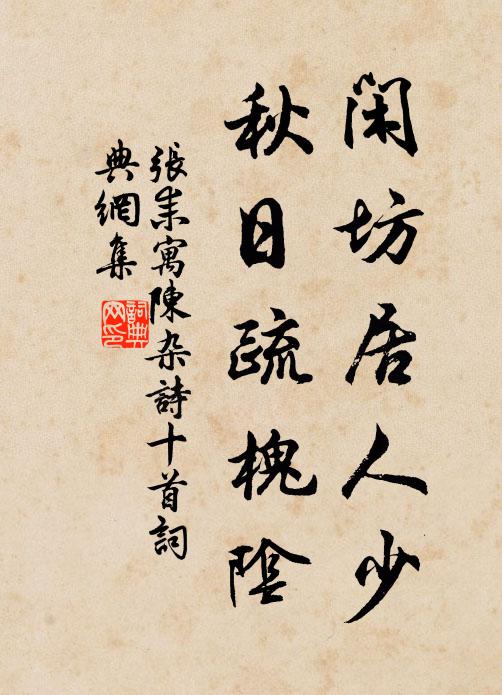 閑坊居人少
秋日疏槐陰
張耒寓陳杂詩十首詞
典網集
詞典
网印